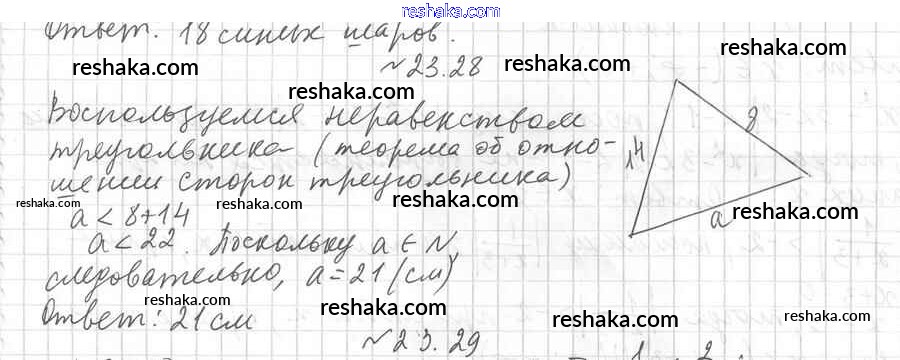 reshaka.com
Ответ: 18 синих шаров.
№23.28
Воспользуемся неравенством
треугольника (теорема об отно-
шении сторон треугольника)
a < 8+14
a < 22. Поскольку a ∈ N,
следовательно, a = 21 (см)
Ответ: 21 см
№23.29
14
8
a
reshaka.com
reshaka.com
reshaka.com
reshaka.com
reshaka.com
reshaka.com
reshaka.com
reshaka.com
reshaka.com
reshaka.com
reshaka.com
reshaka.com
reshaka.com
reshaka.com